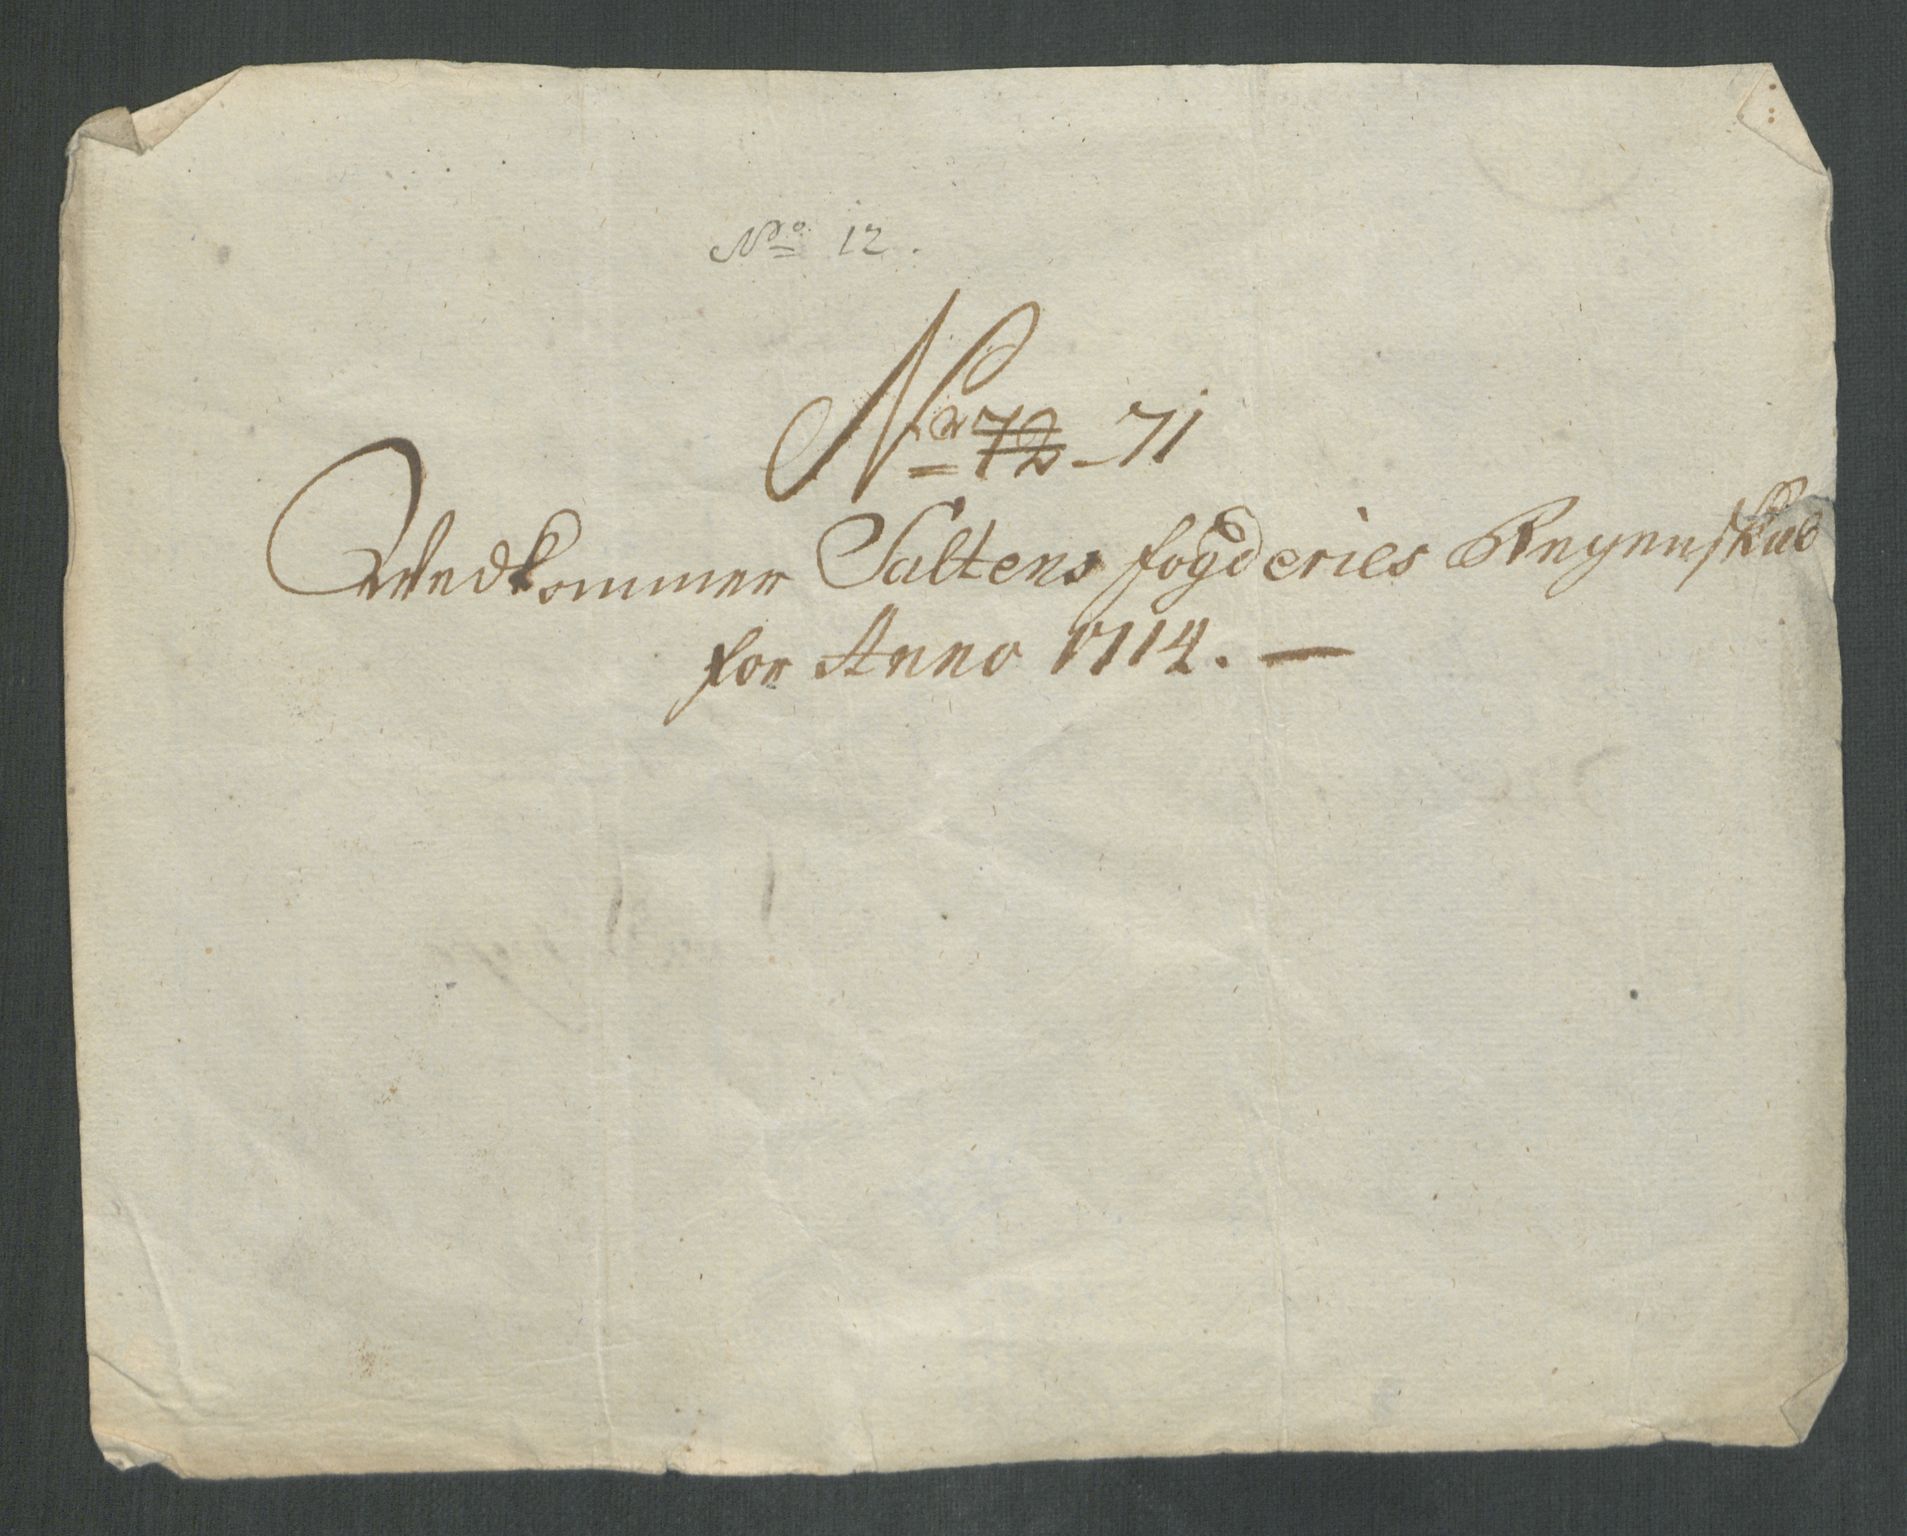 No 12.
Nr 72 - 71
Vedkommer Saltens fogderies Regenskab
for Anno 1714. —